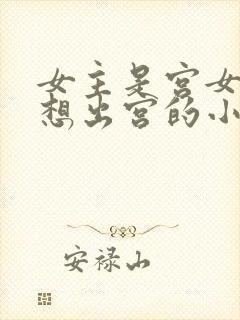 女主是宫女
想出宫的小
安禄山